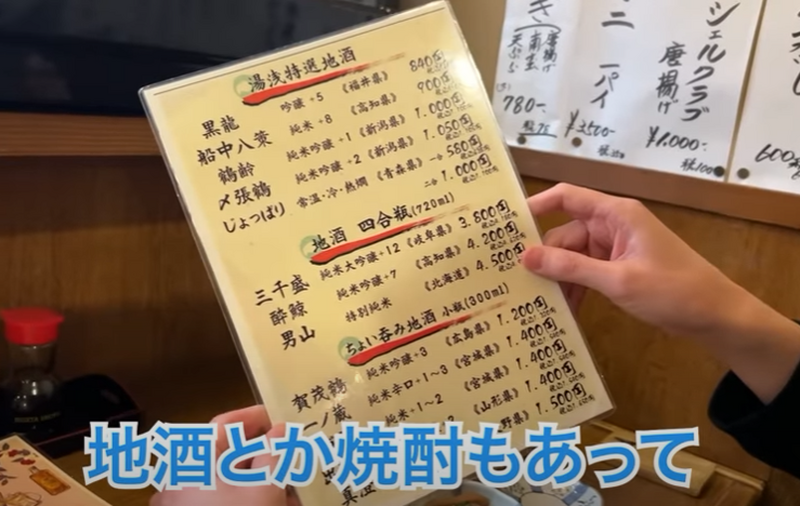 湯浅特選地酒
黒龍 吟醸+5 《福井県》 840円
船中八策 純米+8 《高知県》 900円
鶴齢 純米吟醸+1 《新潟県》 1,000円
〆張鶴 純米吟醸+2 《新潟県》 1,050円
じょっぱり 常温・冷・熱燗 《青森県》 一合 580円
二合 1,000円
地酒 四合瓶(720ml)
三千盛 純米大吟醸+12 《岐阜県》 3,800円
酔鯨 純米吟醸+7 《高知県》 4,200円
男山 特別純米 《北海道》 4,500円
ちょい呑み地酒 小瓶(300ml)
賀茂鶴 純米吟醸+3 《広島県》 1,200円
一ノ蔵 純米辛口+1~3 《宮城県》 1,400円
純米+1~2 《宮城県》 1,400円
《山形県》 1,400円
野県》 1,500円
真澄
き
唐揚げ
南蛮
天ぷら
780-
一パイ
¥3,500-
シェルクラブ
唐揚げ
¥1,000-
税100
600
地酒とか焼酎もあって